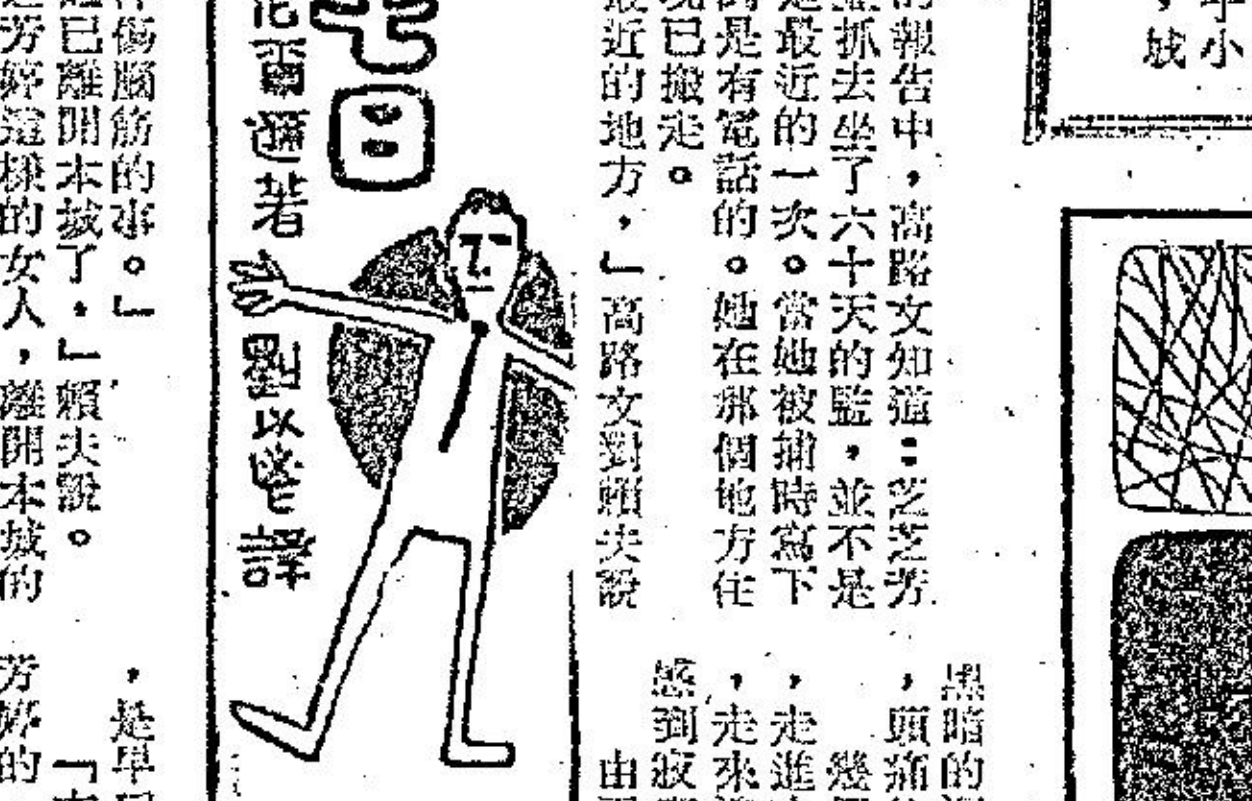 小
，城
的報告中，高路文知道：芝芝芳
抓去坐了六十天的監，並不是
是最近的一次。當她被捕時寫下
的是有電話的。她在那個地方住
已搬走。
最近的地方，」高路文對賴夫說
黑暗的
，頭痛
幾
，走進
，走來
感到疲
由
日
爾邇著
劉以鬯譯
傷腦筋的事。」
已離開本城了，」賴夫說。
芳婷這樣的女人，離開本城的
，是早
「
芳婷的